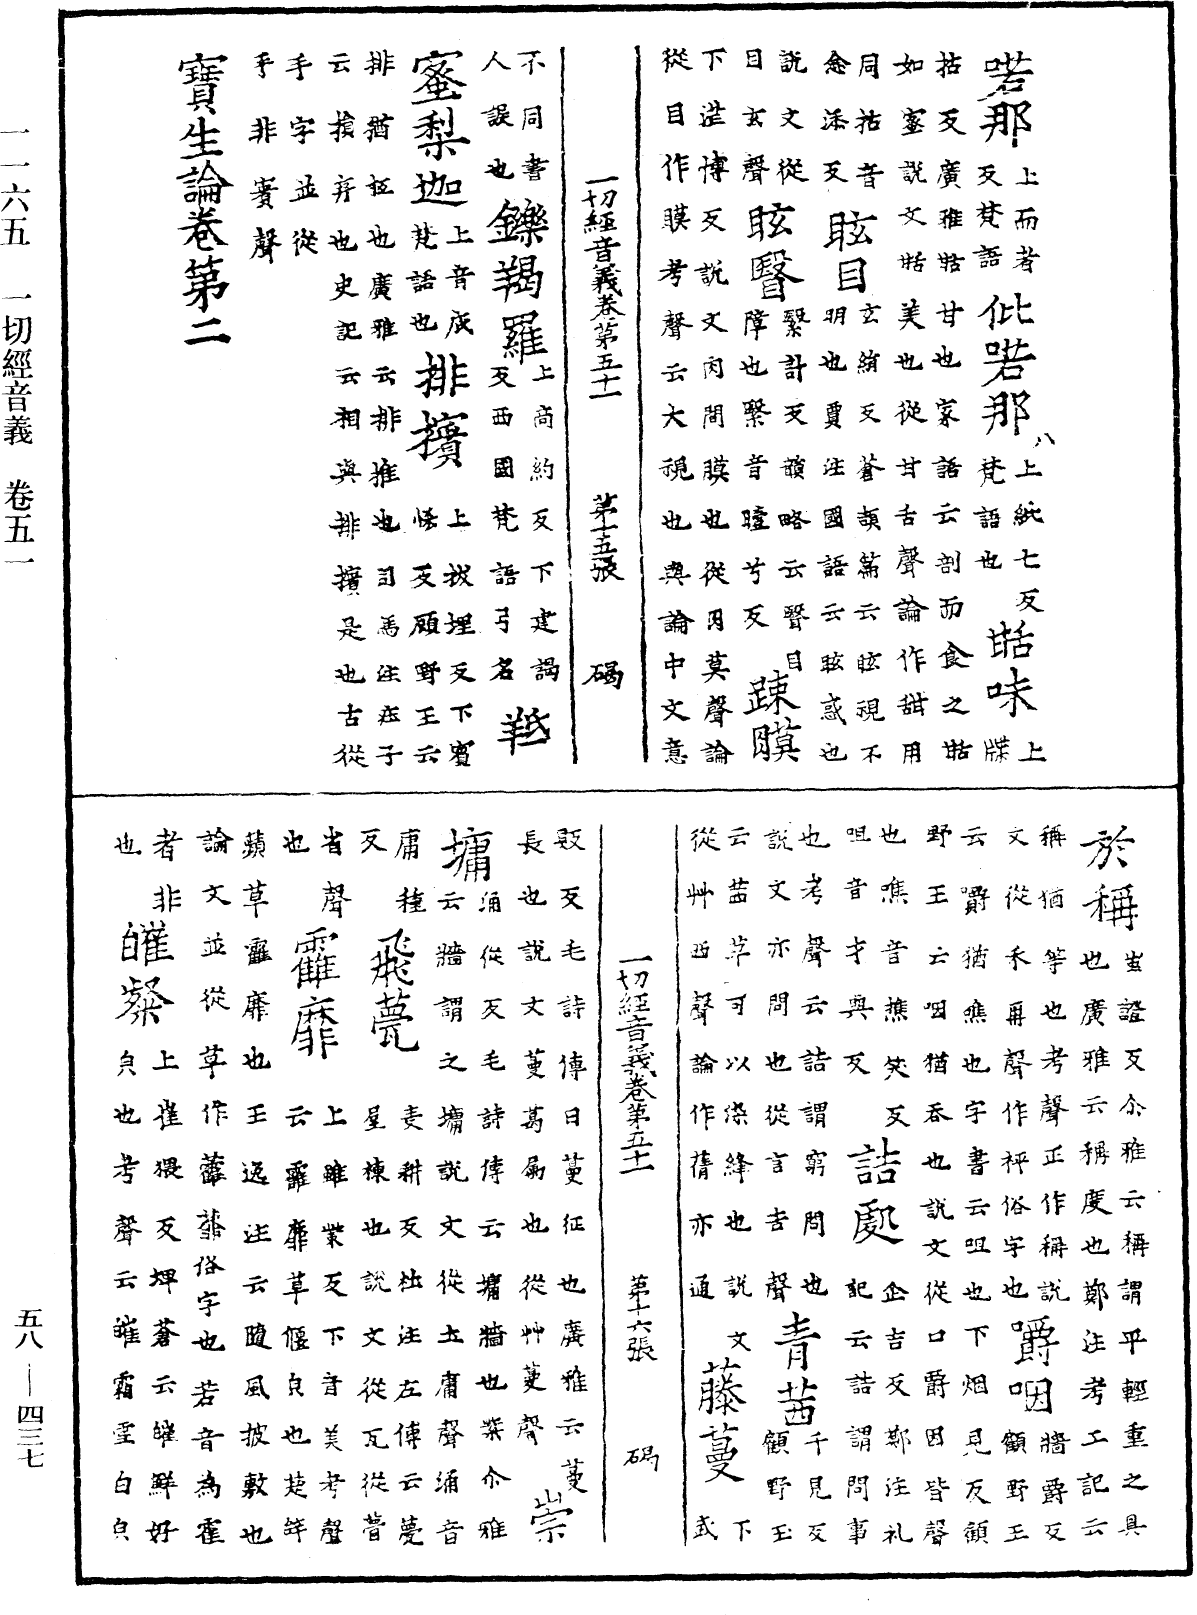 喏那 上而者反梵語 仳喏那 八上紕七反梵語也 甛味 上牒
拈反廣雅甛甘也家語云剖而食之甛
如蜜說文甛美也從甘舌聲論作甜用
同拈音念添反 眩目 玄絢反蒼頡篇云眩視不
明也賈注國語云眩惑也
說文從目玄聲 眩瞖 繄計反韻略云瞖目
障也繄音曀兮反 踈膜
下茫博反說文肉間膜也從肉莫聲論
從目作瞙考聲云大視也與論中文意
一切經音義卷第五十一 第十五張 碣
不同書人誤也 鑠羯羅 上商約反下建謁
反西國梵語弓名 羝
蜜梨迦 上音底梵語也 排擯 上敀埋反下賓
慘反顧野王云
排猶抂也廣雅云排推也司馬注莊子
云擯弃也史記云相與排擯是也古從
手字並從
手非賓聲
寶生論卷第二
於稱 蚩證反尒雅云稱謂平輕重之具
也廣雅云稱度也鄭注考工記云
稱猶等也考聲正作稱說
文從禾爯聲作秤俗字也 嚼咽 牆爵反
顧野王
云嚼猶噍也字書云咀也下烟見反顧
野王云咽猶吞也說文從口爵因皆聲
也噍音樵笑反
咀音才與反 詰處 企吉反鄭注礼
記云詰謂問事
也考聲云詰謂窮問也
說文亦問也從言吉聲 青茜 千見反
顧野王
云茜草可以染絳也說文
從艸西聲論作蒨亦通 藤蔓 下
武
一切經音義卷第五十一 第十六張 碣
販反毛詩傳曰蔓征也廣雅云蔓
長也說文蔓葛屬也從艸蔓聲 崇
墉 涌從反毛詩傳云墉牆也樂尒雅
云牆謂之墉說文從土庸聲涌音
庸種
反 飛甍 麦耕反杜注左傳云甍
屋棟也說文從瓦從瞢
省聲
也 靃靡 上雖㭰反下音美考聲
云靃靡草偃皃也楚辝
蘋草靃靡也王逸注云隨風披敷也
論文並從草作虇蘼俗字也若音為霍
者非
也 皠粲 上崔猥反埤蒼云皠鮮好
皃也考聲云皠霜雪白皃
一一六五 一切經音義 卷五一
五八—四三七